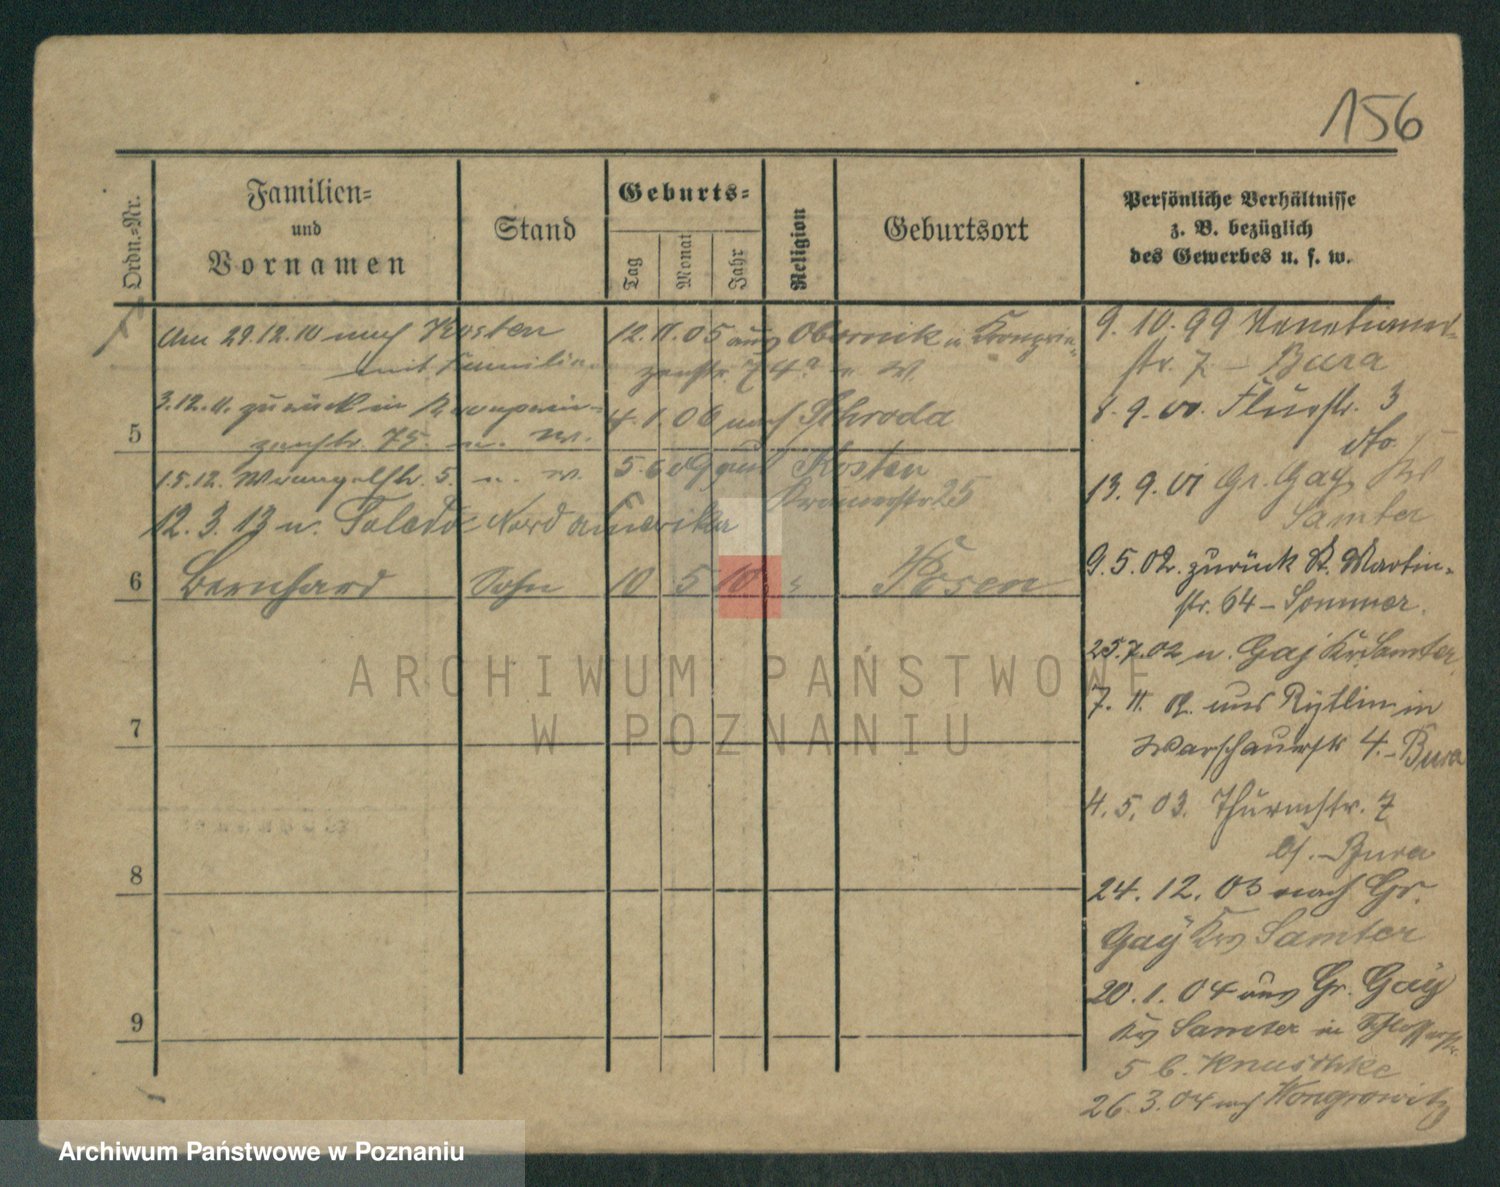 156
Ordn.-Nr.
Familien-
und
Vornamen
Stand
Geburts-
Tag
Monat
Jahr
Religion
Geburtsort
Persönliche Verhältnisse
z. B. bezüglich
des Gewerbes u. s. w.
Am 29.12.10 nach Kosten
mit Familie
3.12.11. zurück in Kronprin-
zenstr. 75. u. W.
15.12. Wrangelstr. 5. u. W.
12.3.13 n. Toledo Nord Amerika
12.11.05 aus Obornik in Kronprin-
zenstr. 74a u. W.
4.1.06 nach Schroda
5.6.09 aus Kosten
25
5
6 Bernhard Sohn 10 5 10 Posen
7
8
9
9.10.99
str. 7 - Bura
8.9.00. Flurstr. 3
dto.
13.9.01 Gr. Gay Krs
Samter
9.5.02. zurück St. Martin-
str. 64 - Sommer.
25.7.02 n. Gaj Kr. Samter
7.11.02. aus Rÿtlin in
Warschauerstr 4. - Bura
4.5.03. Thurmstr. 7
b/. - Bura
24.12.03 nach Gr.
Gaÿ Krs Samter
20.1.04 aus Gr. Gaÿ
Krs Samter in Schlosserstr.
5 b. Knuschke
26.3.04 nach Wongrowitz
ARCHIWUM PAŃSTWOWE
W POZNANIU
Archiwum Państwowe w Poznaniu